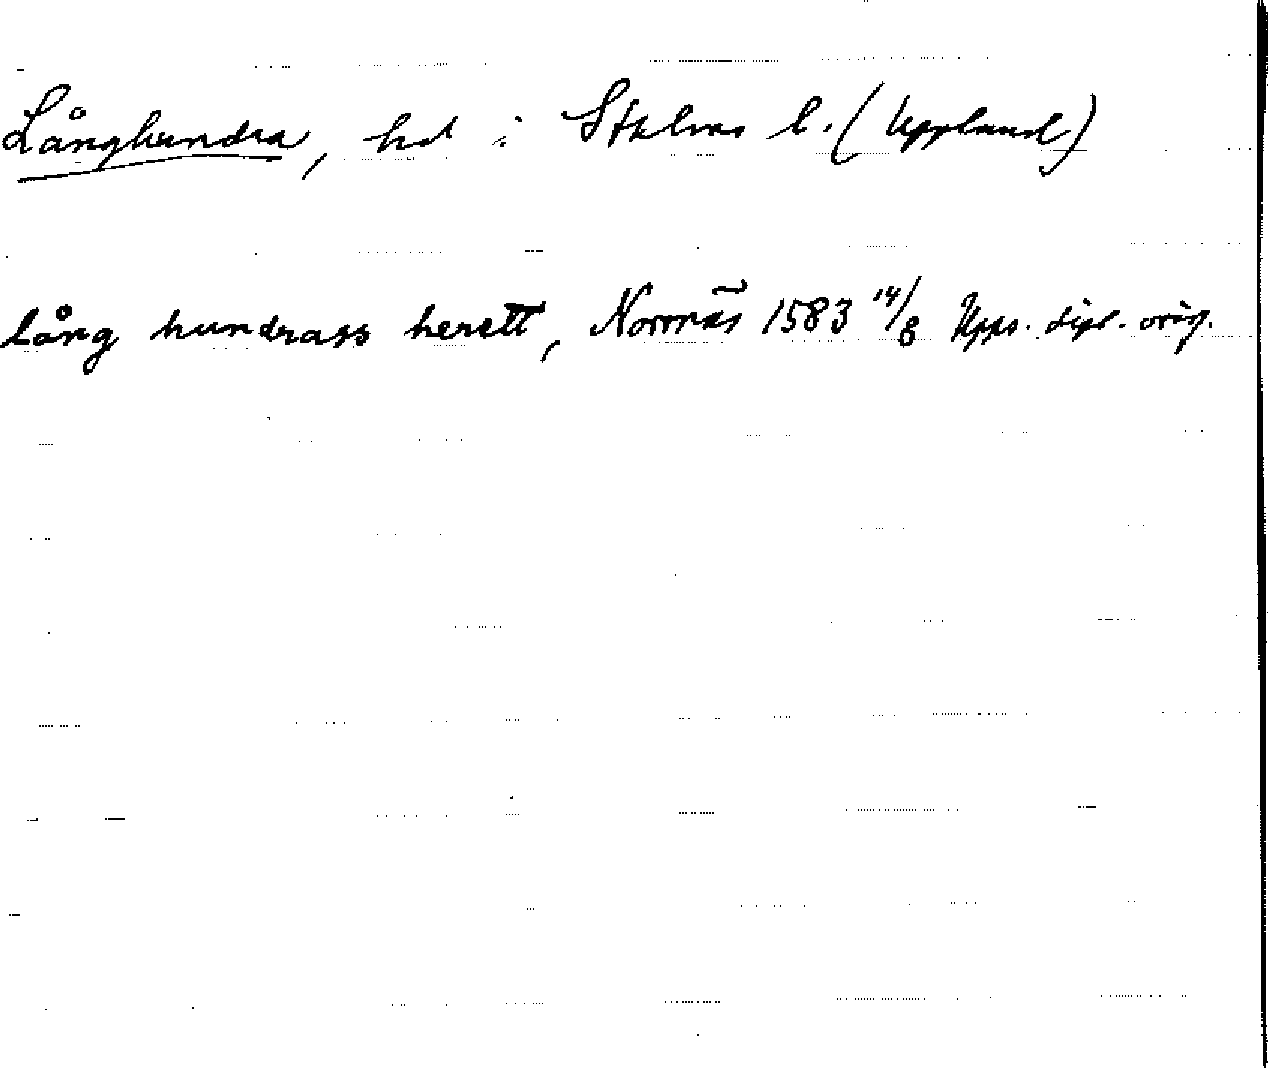 Långhundra, hd i Sthlms l. (Uppland)
lång hundrass herett, Norrnäs 1583 14/8 Upps. dipl. orig.